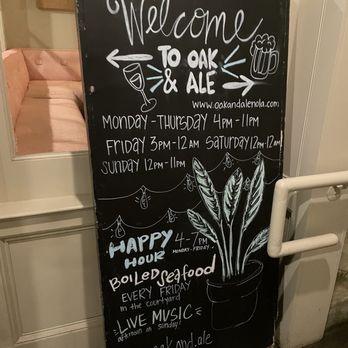 Welcome
TO OAK
& ALE
www.oakandalenola.com
MONDAY - THURSDAY 4PM - 11PM
FRIDAY 3PM - 12AM SATURDAY 12PM - 12AM
SUNDAY 12PM - 11PM
HAPPY HOUR
4 - 7PM
MONDAY - FRIDAY
BOILED SEAFOOD
EVERY FRIDAY
in the courtyard
LIVE MUSIC
afternoon on sunday!
oakand.ale